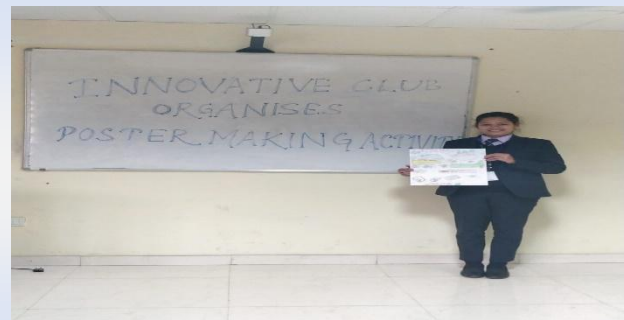 INNOVATIVE CLUB
ORGANISES
POSTER MAKING ACTIVIT